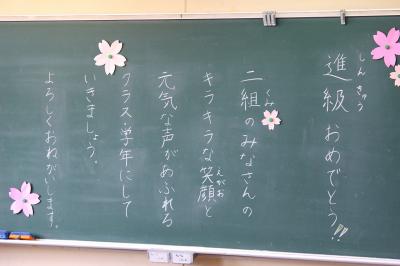 進級おめでとう!!
しんきゅう
二組のみなさんの
くみ
キラキラな笑顔と
えがお
元気な声があふれる
クラス学年にして
いきましょう。
よろしくおねがいします。